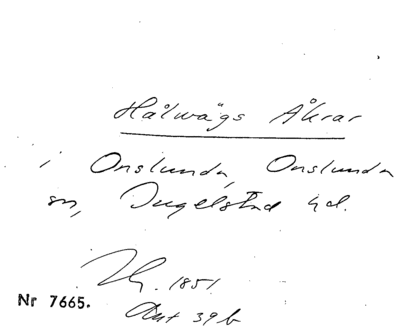 Hålwägs Åkrar
i Onslunda, Onslunda
sn, Ingelstad hd.
Th. 1851.
Nr 7665.
Aut 39 b